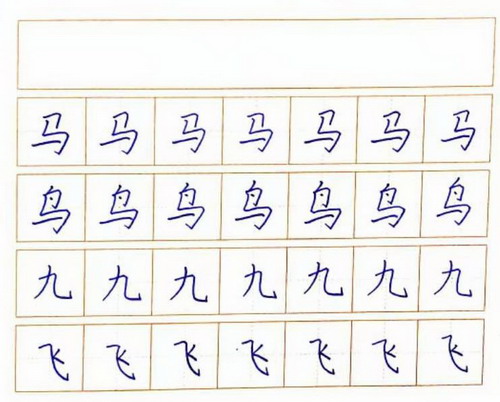 马马马马马马马
鸟鸟鸟鸟鸟鸟鸟
九九九九九九九
飞飞飞飞飞飞飞